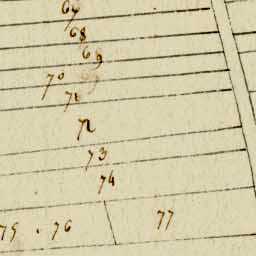 67
68
69
70
71
72
73
74
75 . 76 77